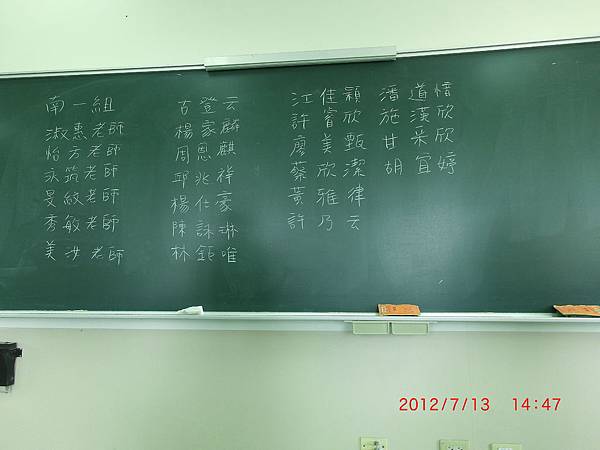 南一組
淑惠老師
怡方老師
永筑老師
旻紋老師
秀敏老師
美汝老師
古登云
楊家麟
周恩麒
邱兆祥
楊仁豪
陳詠琳
林鉅唯
江佳穎
許睿欣
廖美甄
蔡欣潔
黃雅律
許乃云
潘道
施漢欣
甘采欣
胡宜婷
2012/7/13 14:47